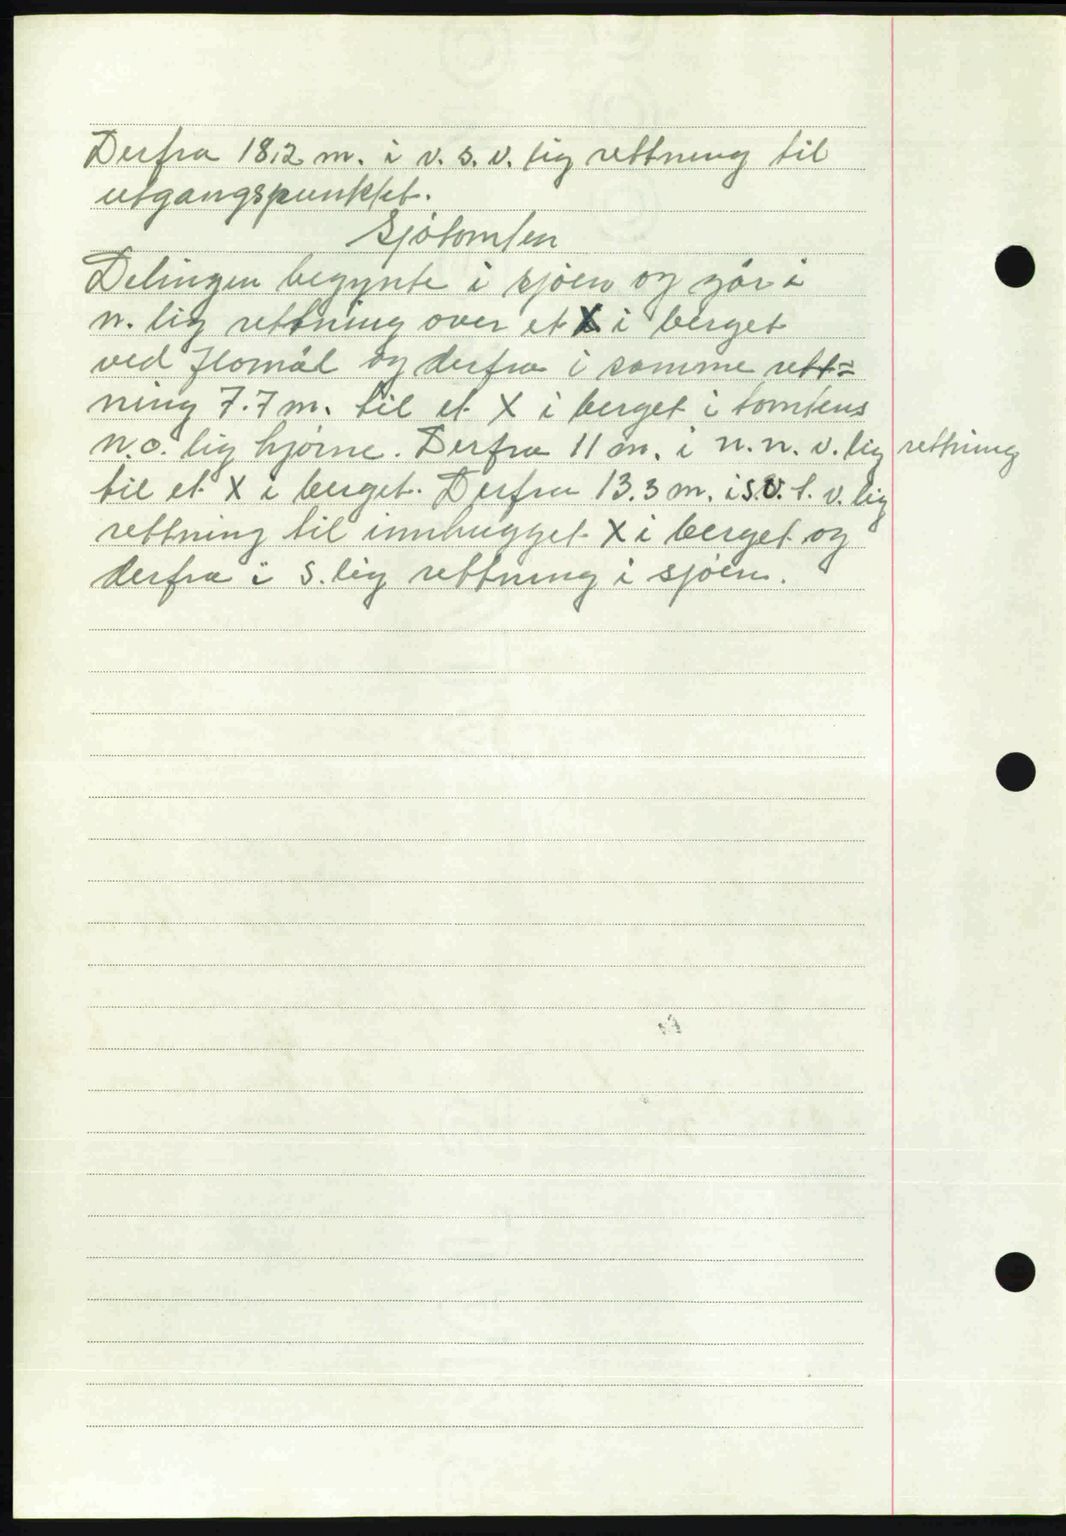 Derfra 18,2 m. i v. s. v. lig rettning til
utgangspunktet.
Sjøtomten
Delingen begynte i sjøen og går i
n. lig rettning over et X i berget
ved flomål og derfra i samme rett=
ning 7.7 m. til et X i berget i tomtens
n.o. lig hjørne. Derfra 11 m. i n. n. v. lig rettning
til et X i berget. Derfra 13.3 m. i s. v. t. v. lig
rettning til innhugget X i berget og
derfra i s. lig rettning i sjøen.